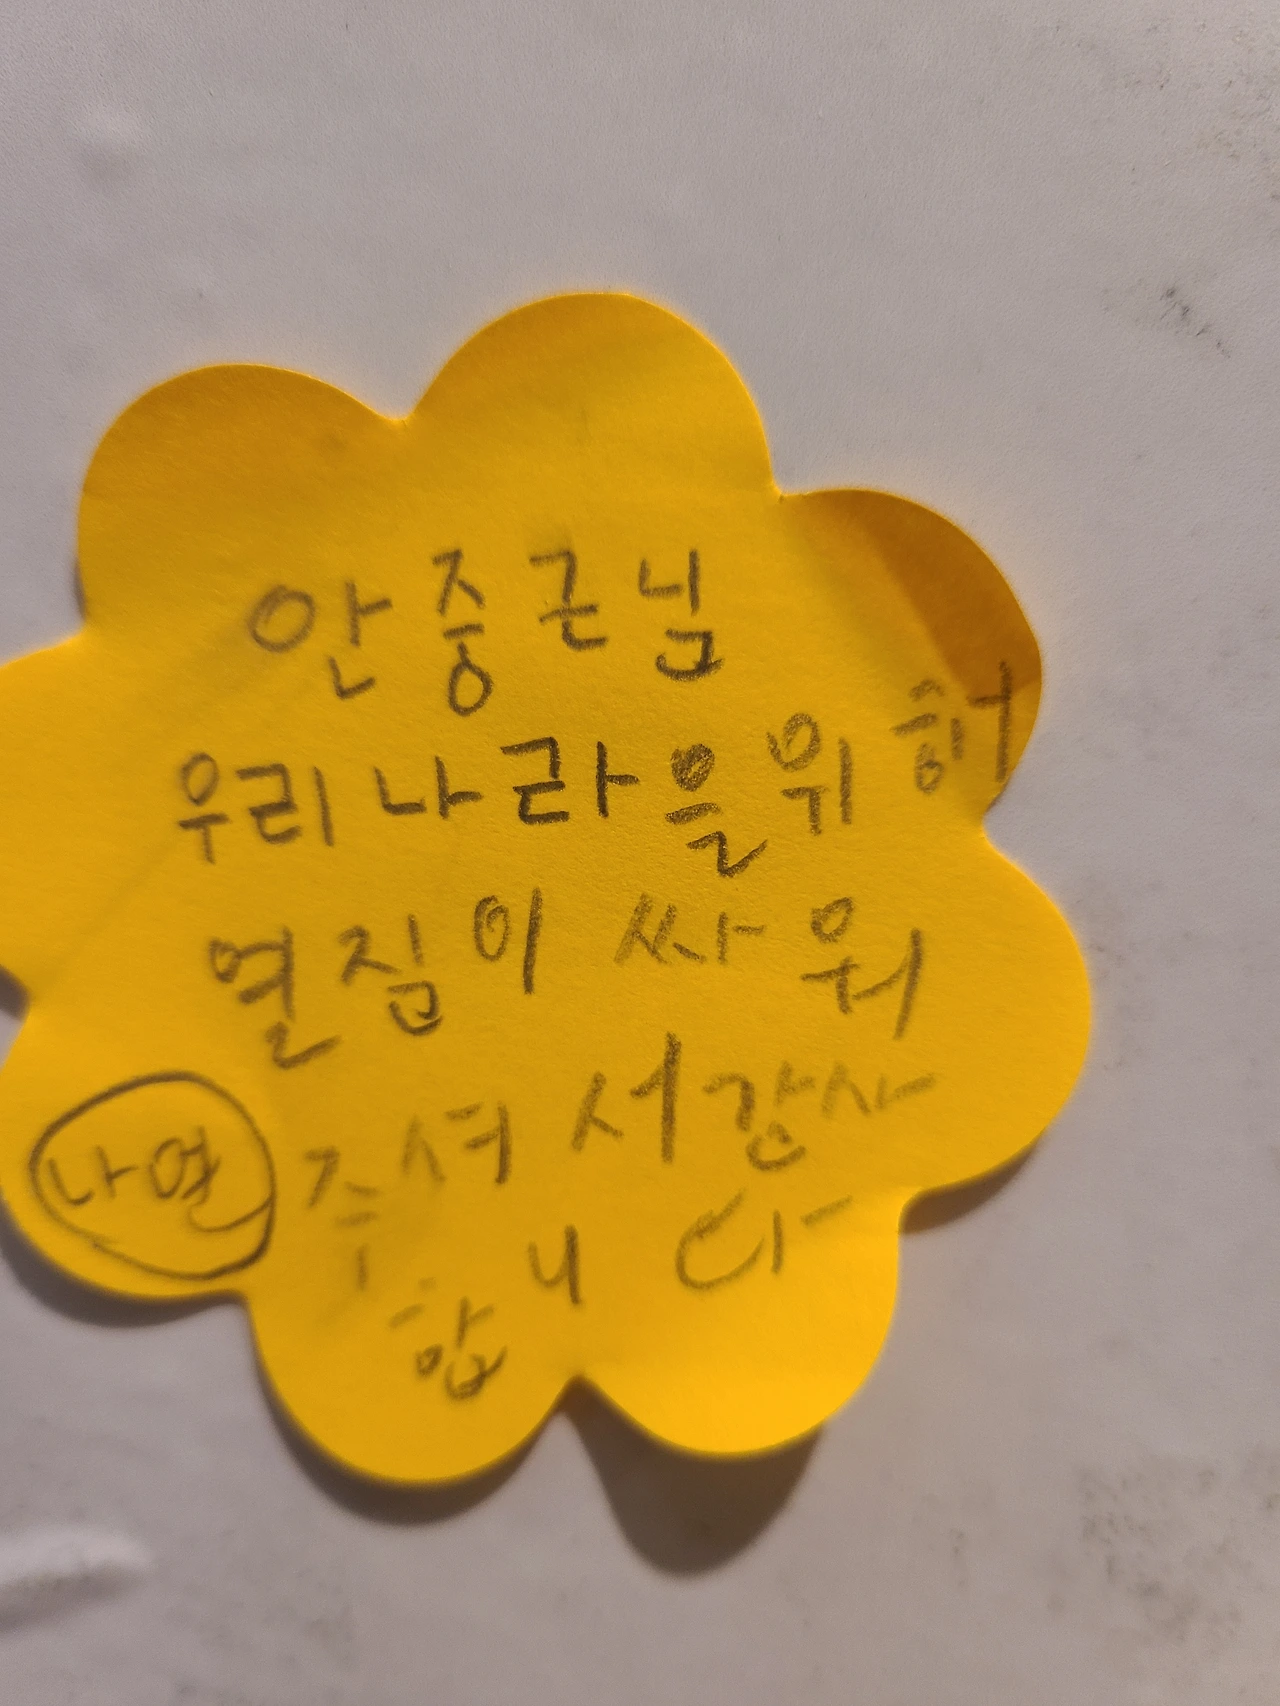 안중근님
우리나라을위해
열짐이 싸워
주셔서감사
합니다
나열